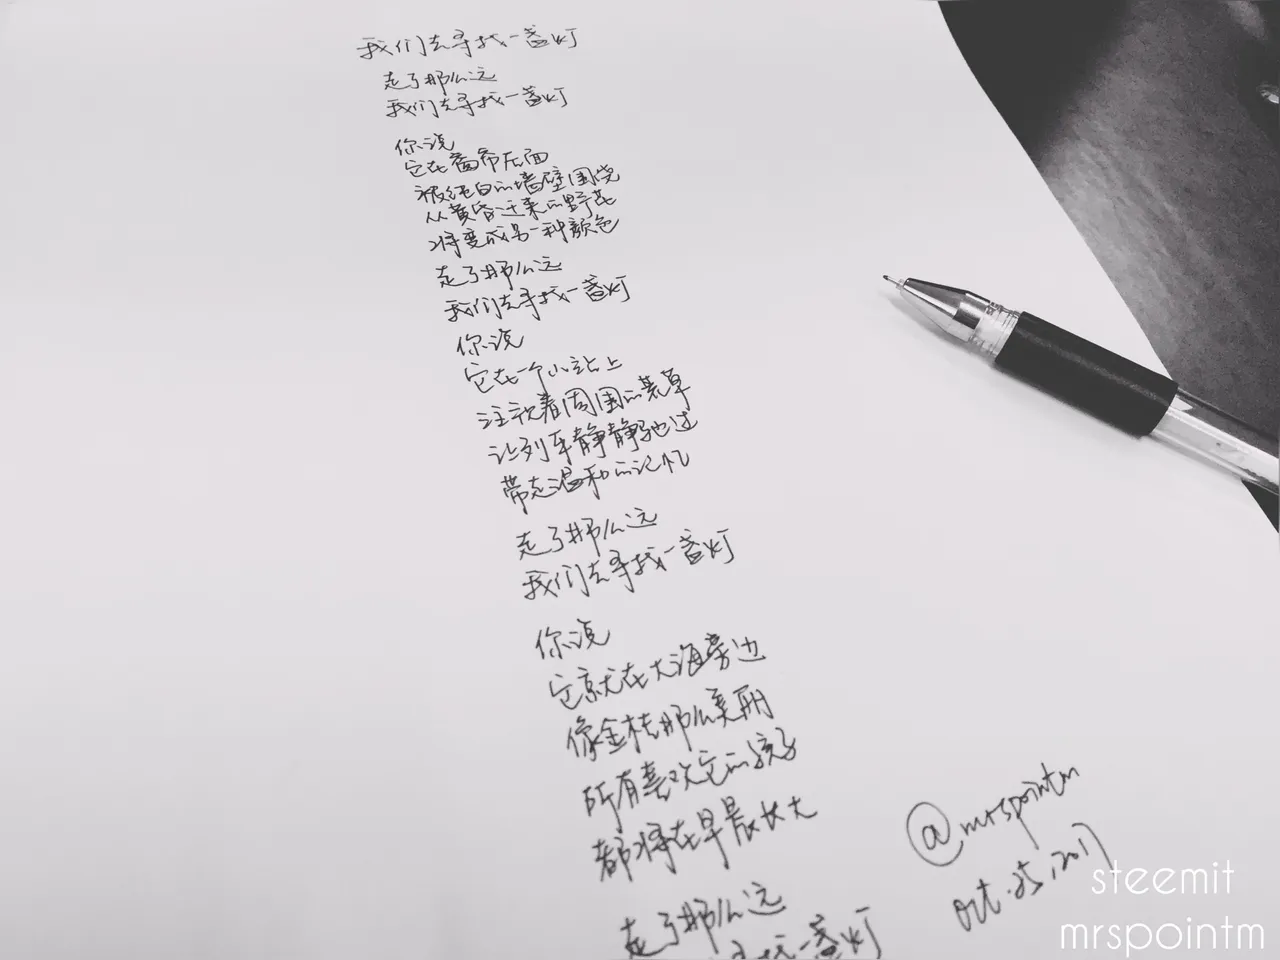 我们去寻找一盏灯
走了那么远
我们去寻找一盏灯
你说
它在窗帘后面
被纯白的墙壁围绕
从黄昏迁来的野花
将变成另一种颜色
走了那么远
我们去寻找一盏灯
你说
它在一个小站上
注视着周围的荒草
让列车静静驰过
带走温和的记忆
走了那么远
我们去寻找一盏灯
你说
它就在大海旁边
像金桔那么美丽
所有喜欢它的孩子
都将在早晨长大
走了那么远
寻找一盏灯
@mrspointm
Oct.25,2017
steemit
mrspointm